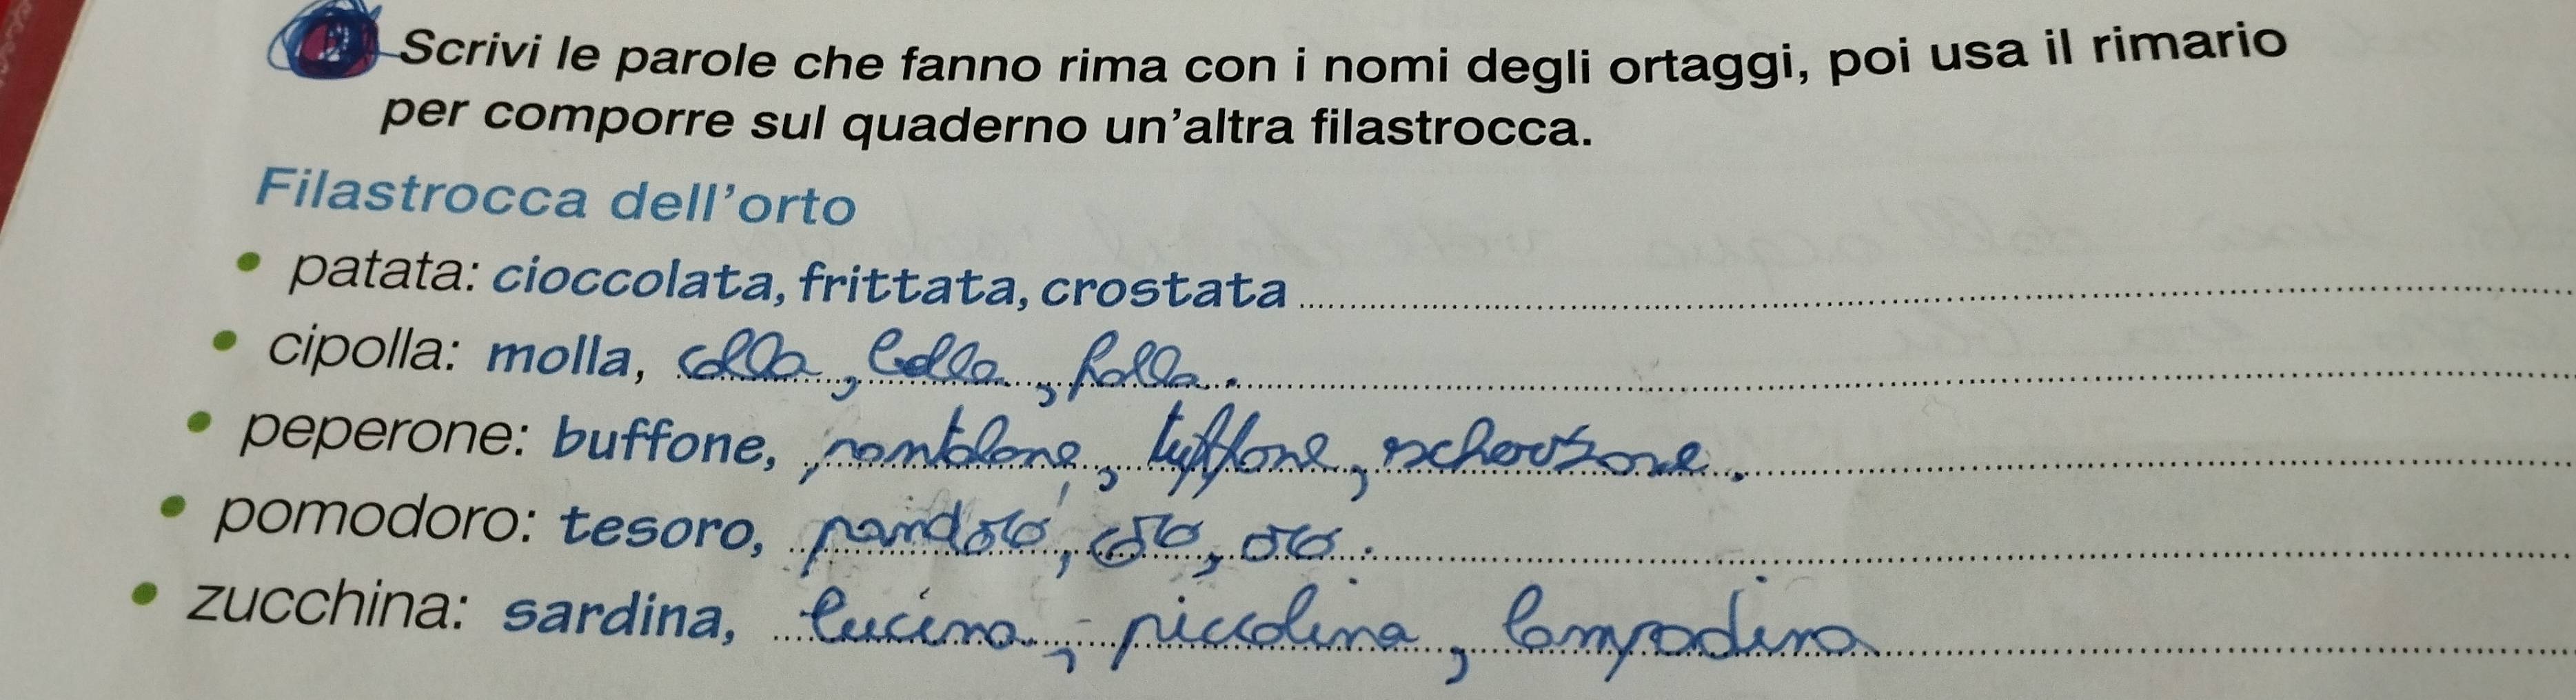 2 Scrivi le parole che fanno rima con i nomi degli ortaggi, poi usa il rimario
per comporre sul quaderno un'altra filastrocca.
Filastrocca dell'orto
• patata: cioccolata, frittata, crostata
• cipolla: molla, colla, bolla, folla.
• peperone: buffone, pantalone, tuffone, scherzone.
• pomodoro: tesoro, pandoro, coro, oro.
• zucchina: sardina, lucina, piccolina, lampadina